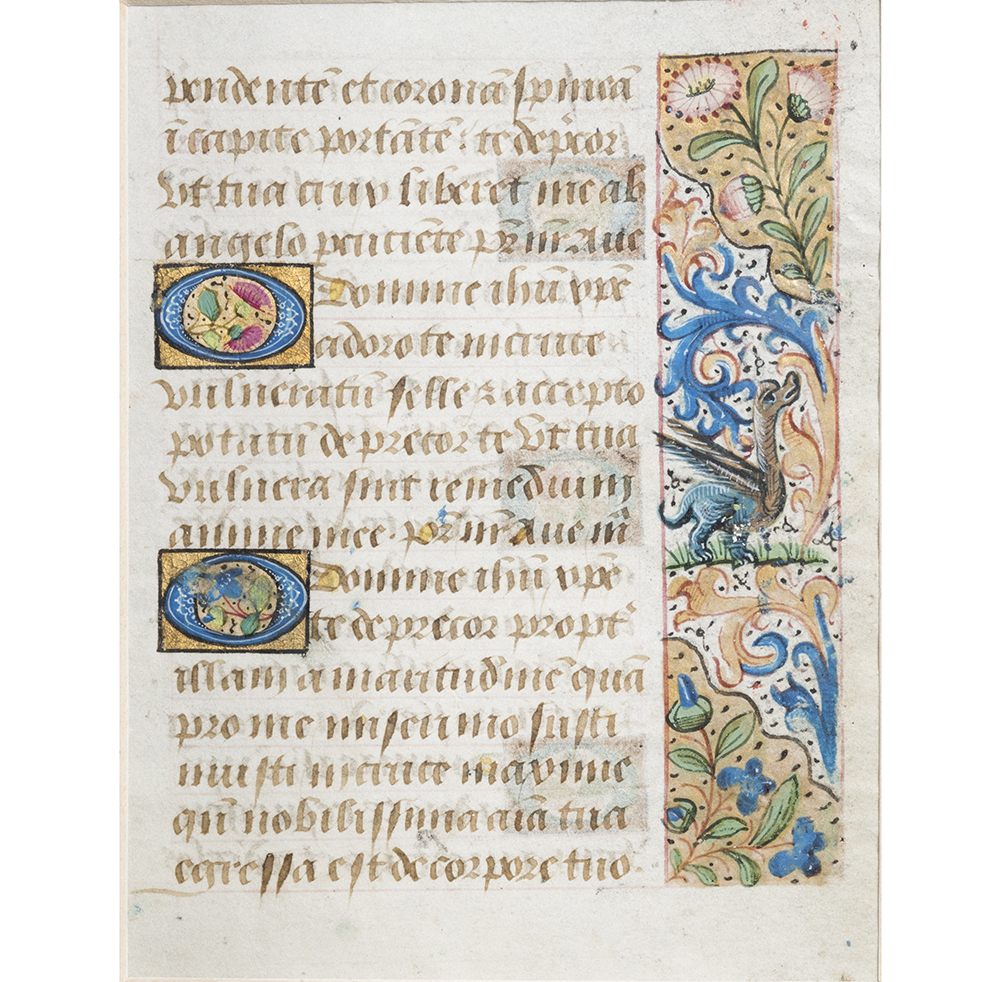 pendentē et coronā spineā
ī capite portātē: te dep̄cor
Vt tua crux liberet me ab
angelo percuciēte pr̄ nr̄. Aue
O Domine ihū xp̄e
adoro te in cruce
vulneratū felle & accepto
potatū deprecor te Vt tua
vulnera sint remedium
anime mee. pr̄ nr̄ Aue m̄
O Domine ihū xp̄e
te deprecor propt̄
illam amaritudinē quā
pro me miserimo susti
nuisti in cruce maxime
qn̄ nobilissima aīa tua
egressa est de corpore tuo.